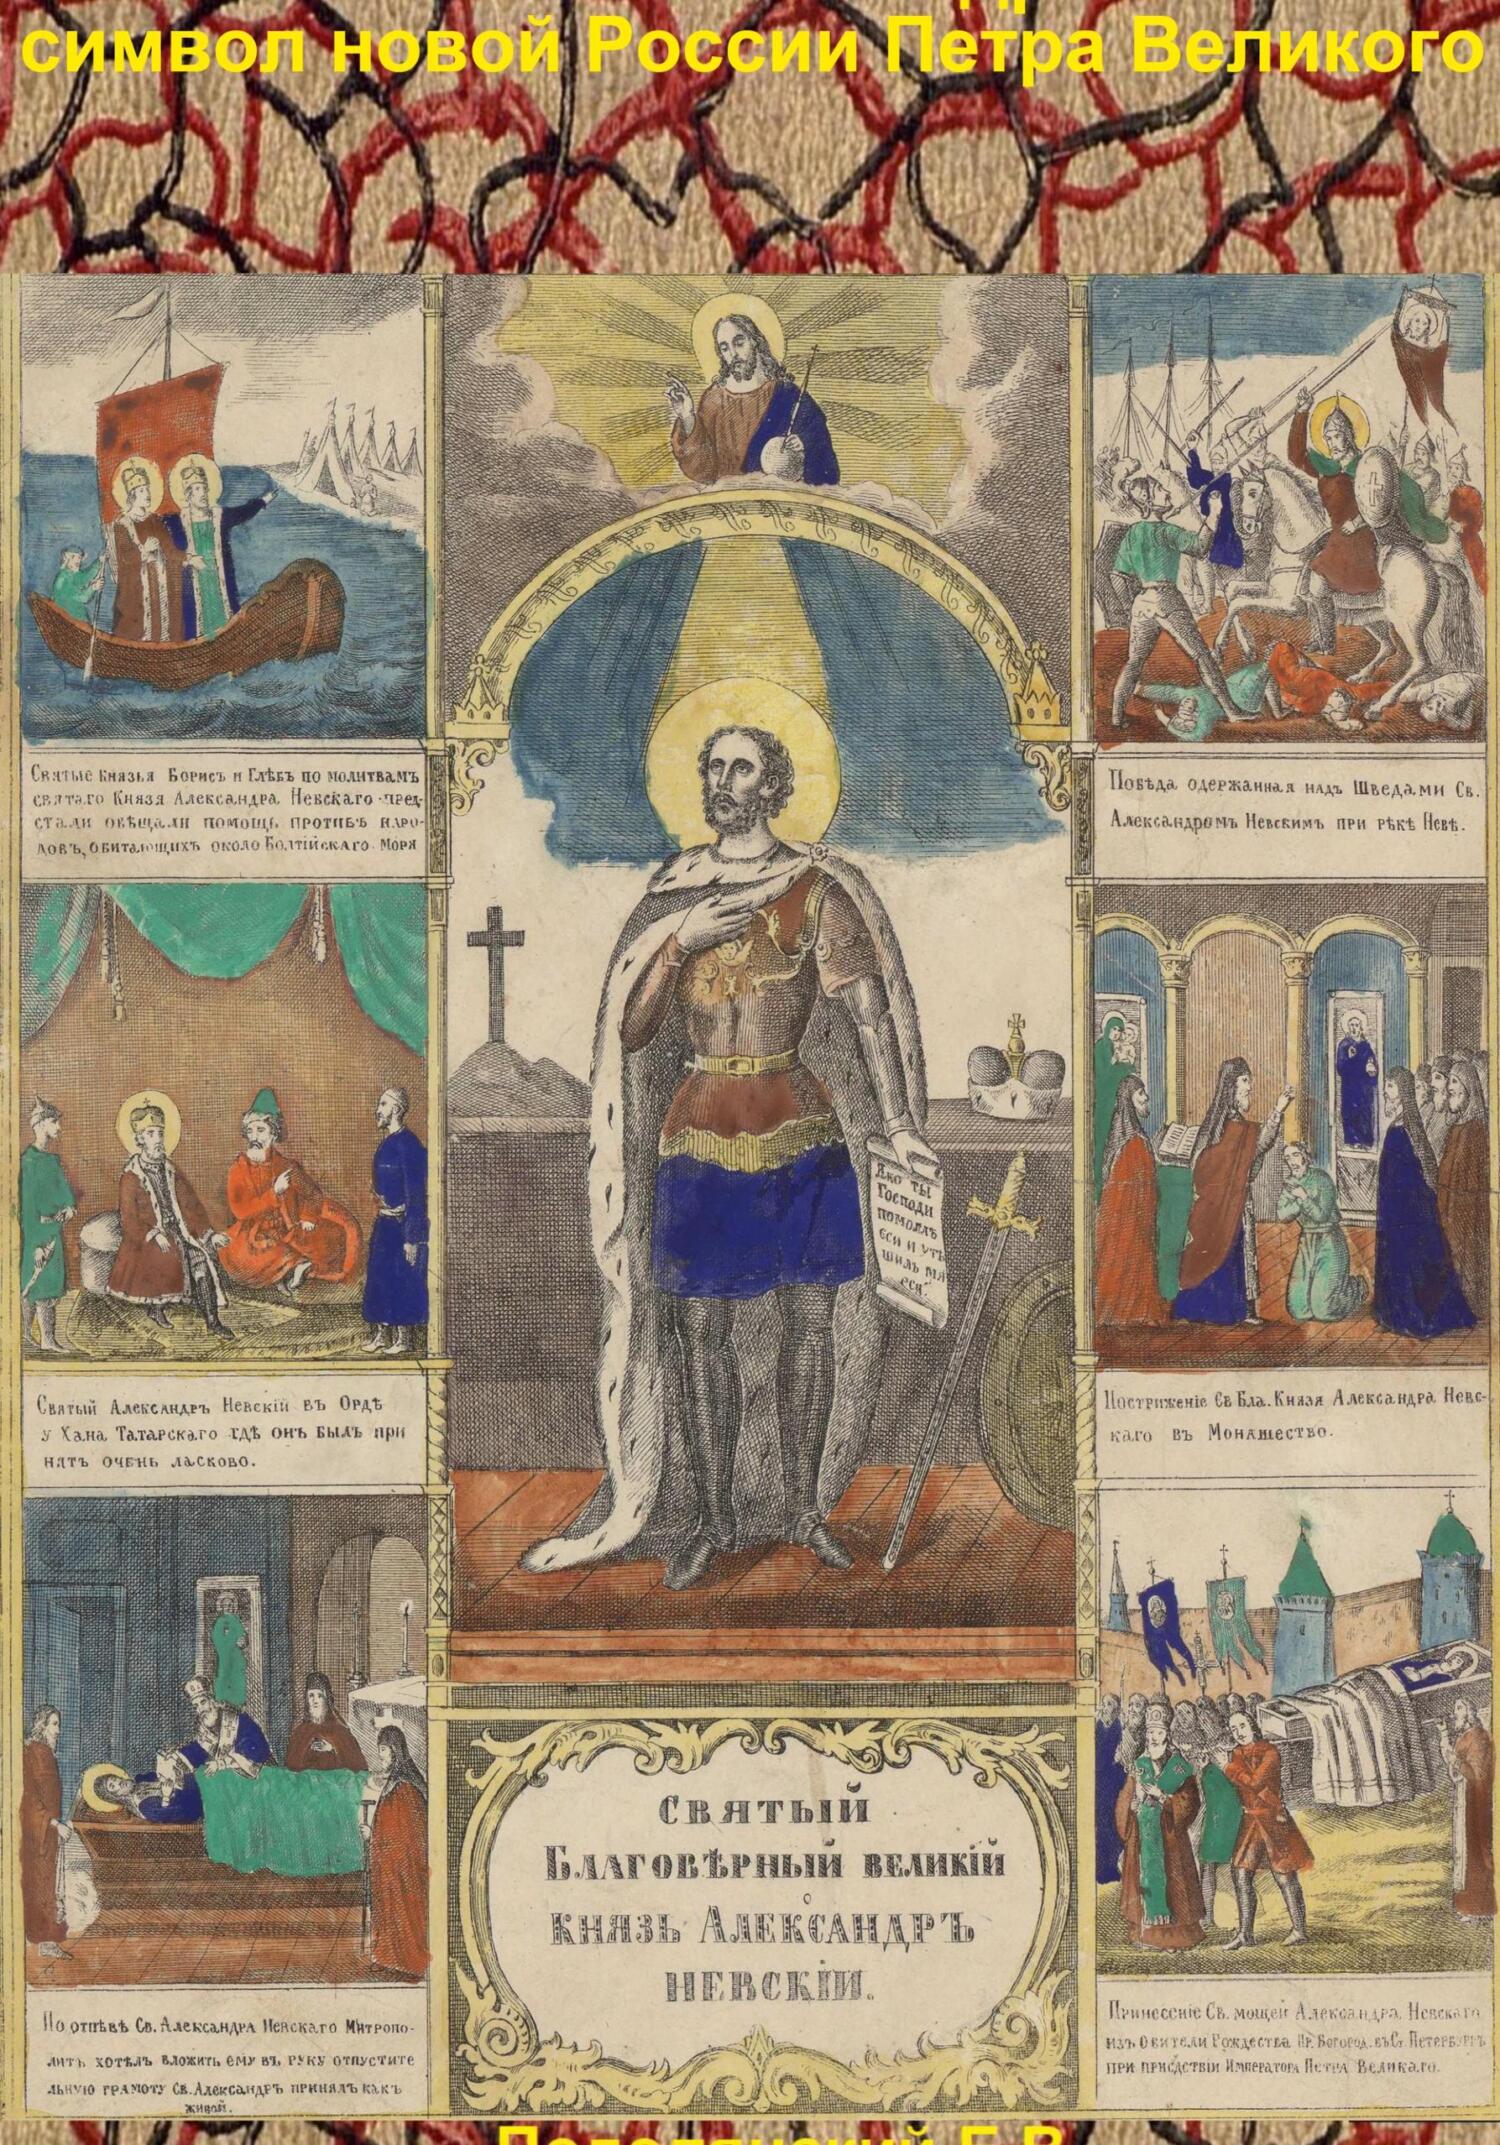 символ новой России Петра Великого
Святые Князья Борисъ и Глѣбъ по молитвамъ
святаго Князя Александра Невскаго пред-
стали обѣщали помощь противъ наро-
довъ, обитающихъ около Болтійскаго моря
Побѣда одержанная надъ Шведами Св.
Александромъ Невскимъ при рѣкѣ Невѣ.
Яко ты
Господи
помоглъ
еси и утѣ
шилъ мя
еси.
Святый Александръ Невскій въ Ордѣ
у Хана Татарскаго гдѣ онъ былъ при
нятъ очень ласково.
Пострижение Св Бла. Князя Александра Невс-
каго въ Монашество.
По отпѣвѣ Св. Александра Невскаго Митропо-
литъ хотѣлъ вложить ему въ руку отпустите
льную грамоту Св. Александръ принялъ какъ
живой.
Святый
Благовѣрный великій
князь Александръ
Невскій.
Принесеніе Св. мощей Александра Невскаго
изъ Обители Рождества Пр. Богород. въ Ст. Петербургъ
при присдствіи Императора Петра Великаго.